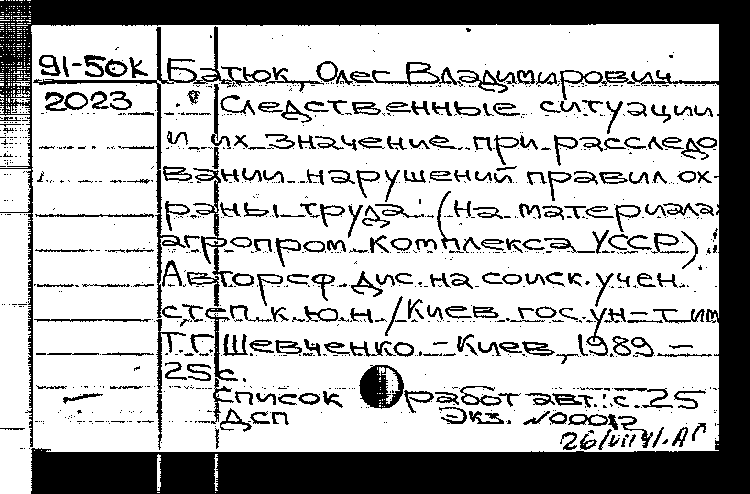 91-50К Батюк, Олег Владимирович
2023 Следственные ситуации
и их значение при расследо
вании нарушений правил ох-
раны труда (на материалах
агропром. комплекса УССР) :
Автореф. дис. на соиск. учен.
степ. к. ю. н. /Киев. гос. ун-т им
Т. Г. Шевченко. - Киев, 1989 -
25 с.
Список работ авт.: с. 25
ДСП Экз. N00012